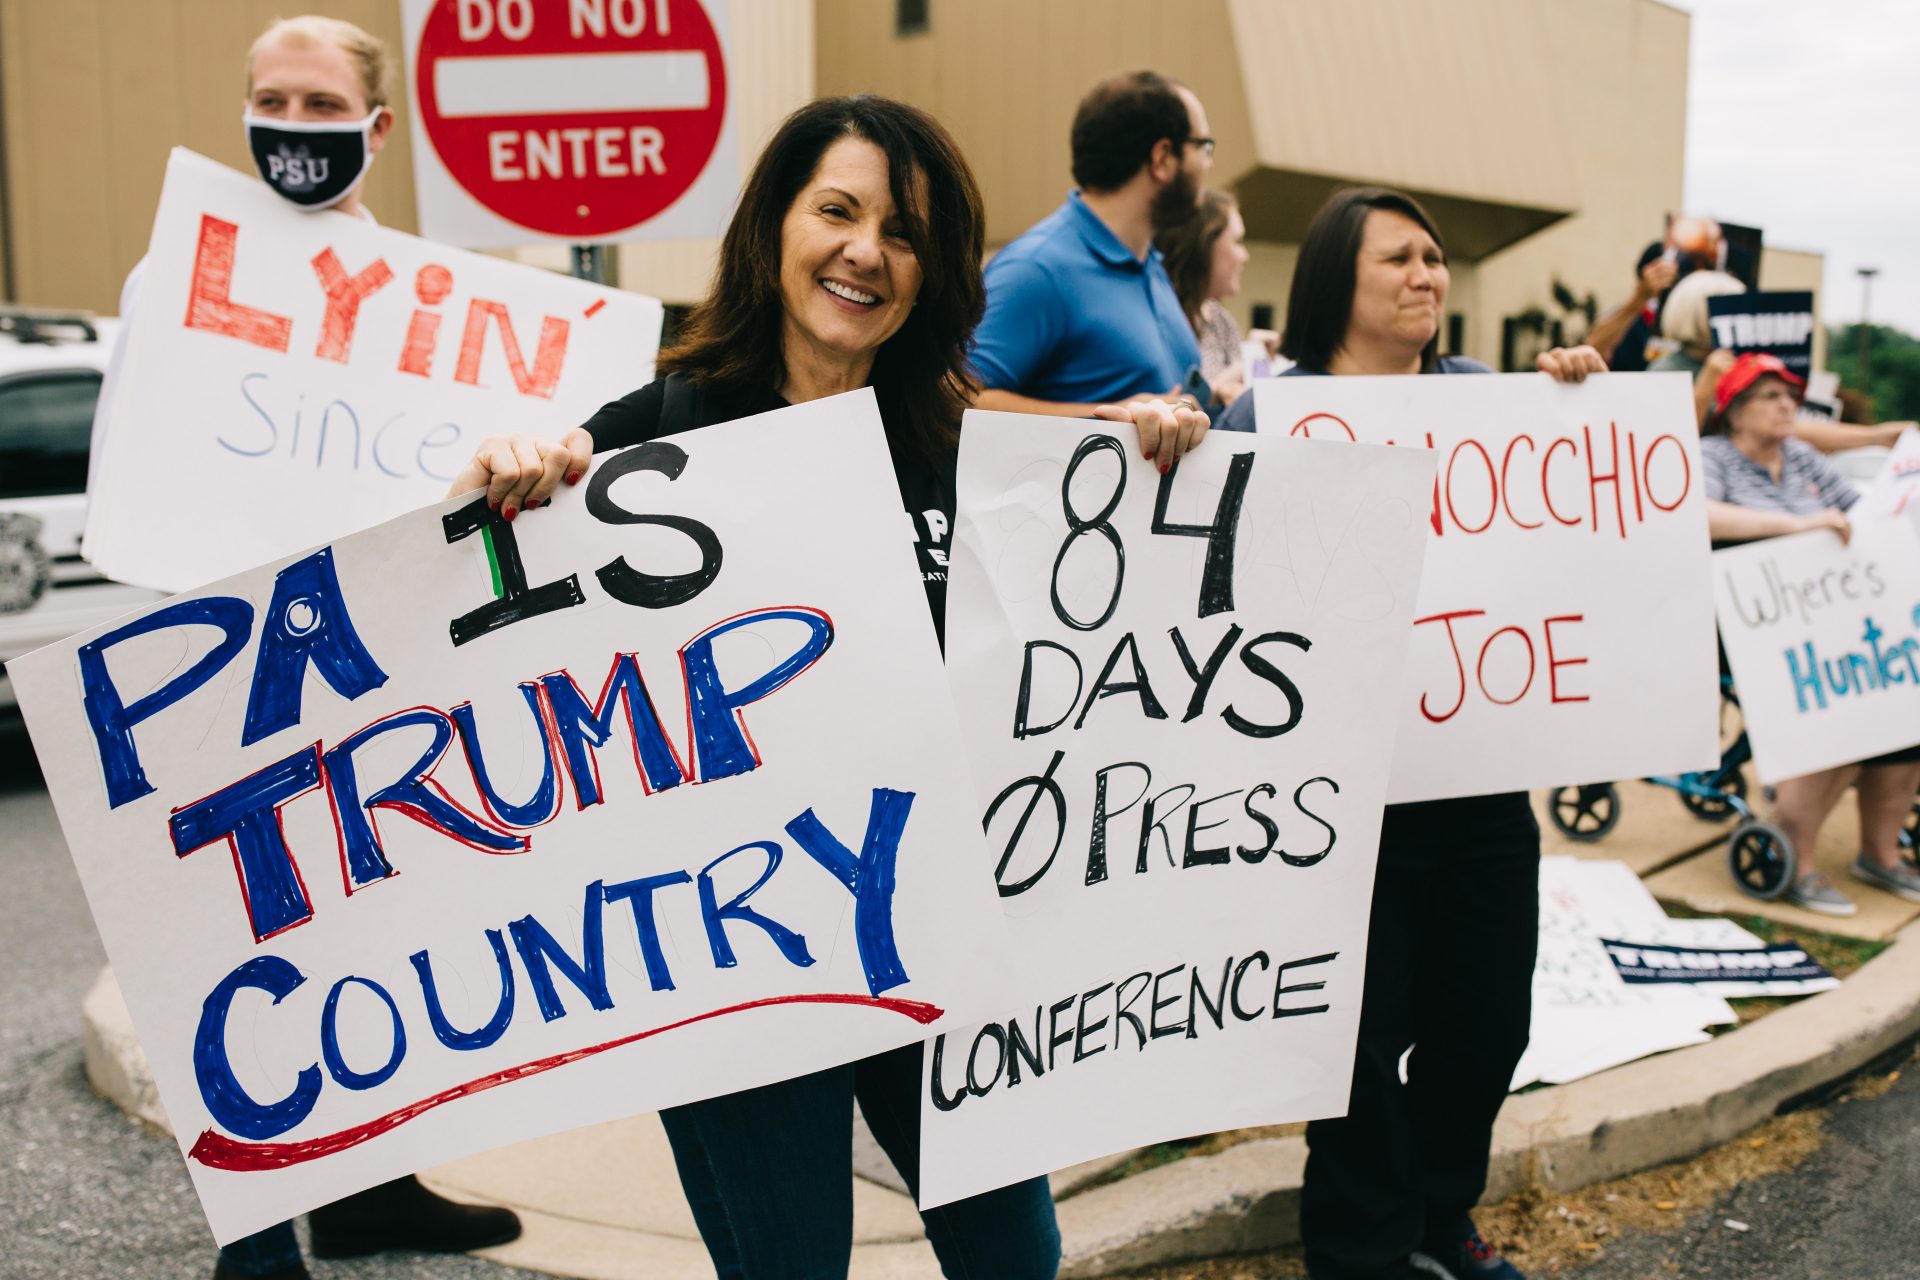 DO NOT
ENTER
PSU
LYiN'
Since
PA IS
TRUMP
COUNTRY
84
DAYS
Ø PRESS
CONFERENCE
PINOCCHIO
JOE
TRUMP
Where's
Hunter?
TRUMP